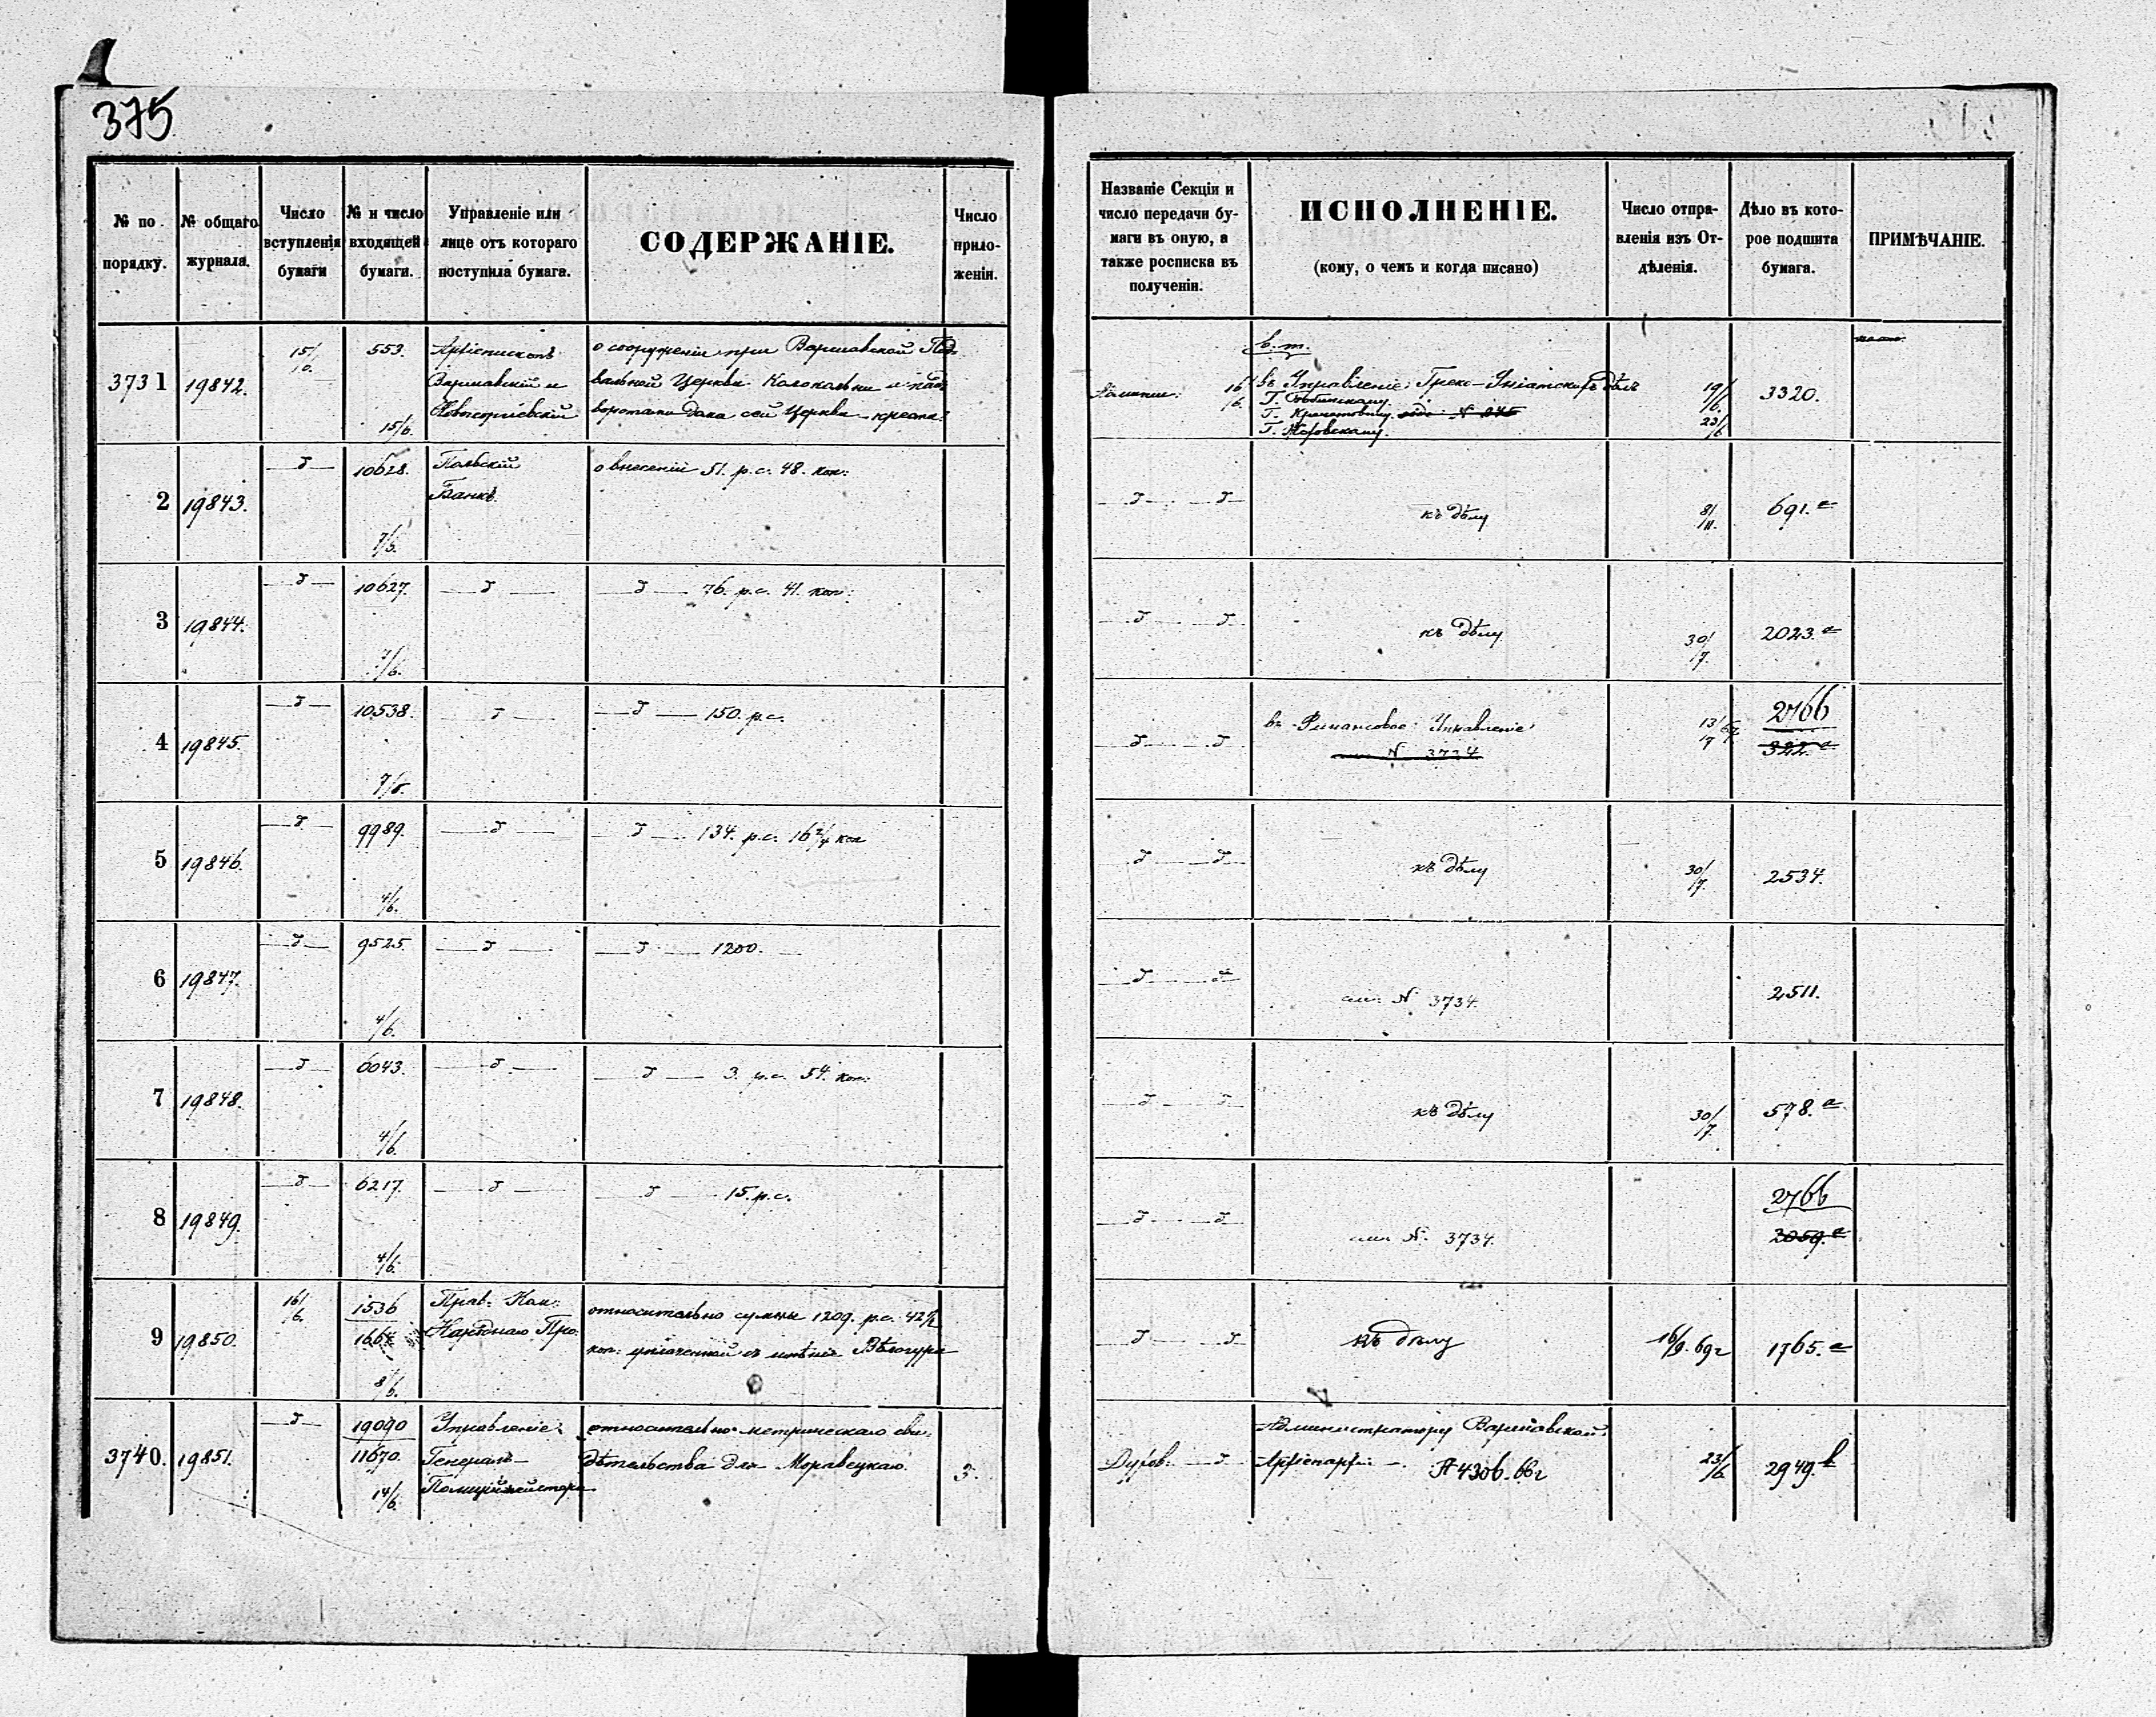 375
№ по порядку.
№ общаго журнала.
Число вступленія бумаги
№ и число входящей бумаги.
Управленіе или лице отъ котораго поступила бумага.
СОДЕРЖАНІЕ.
Число приложеній.
Названіе Секціи и число передачи бумаги въ оную, а также росписка въ полученіи.
ИСПОЛНЕНІЕ.
(кому, о чемъ и когда писано)
Число отправленія изъ Отдѣленія.
Дѣло въ которое подшита бумага.
ПРИМѢЧАНІЕ.
3731 19842. 15/ 553. 15/6.
Архіепископъ
Варшавскій и
Новогеоргіевскій
о сооруженіи при Варшавской
Церкви Колокольни и
сей Церкви
16/6.
въ Управленіе Греко-Уніатскихъ дѣлъ
Г.
Г.
Г.
19/6. 23/6
3320.
2 19843. д 10628. 7/6.
Польскій
Банкъ.
о внесеніи 51. р.с. 48. коп:
д д къ дѣлу 8/11. 691. а
3 19844. д 10627. 7/6. д
д 76. р.с. 41. коп:
д д къ дѣлу 30/7. 2023. а
4 19845. д 10538. 7/6. д
д 150. р.с.
д д въ Финансовое Управленіе
N 3724
13/17
2766
322. а
5 19846. д 9989. 4/6. д
д 134. р.с. 16 2/4 коп
д д къ дѣлу 30/7. 2534.
6 19847. д 9525 4/6. д
д 1200.
д д см: N 3734. 2511.
7 19848. д 6043. 4/6. д
д 3. р.с. 54. коп:
д д къ дѣлу 30/7. 578. а
8 19849. д 6217. 4/6. д
д 15. р.с.
д д см N. 3734.
2766
2059. а
9 19850. 16/6. 1536 8/6.
Прав: Ком:
Народнаго Про:
относительно суммы 1209. р.с. 42 1/2
коп: уплаченной съ имѣнія
д д къ дѣлу 16/9. 69 г 1765. а
3740. 19851. д 19090 11670. 14/6.
Управленіе
Генералъ-
Полиціймейстера
относительно метрическаго сви:
дѣтельства для Моравецкаго.
3.
д
Администратору Варшавской
Архіепарх: N 4306. 66 г
23/6. 2949. b